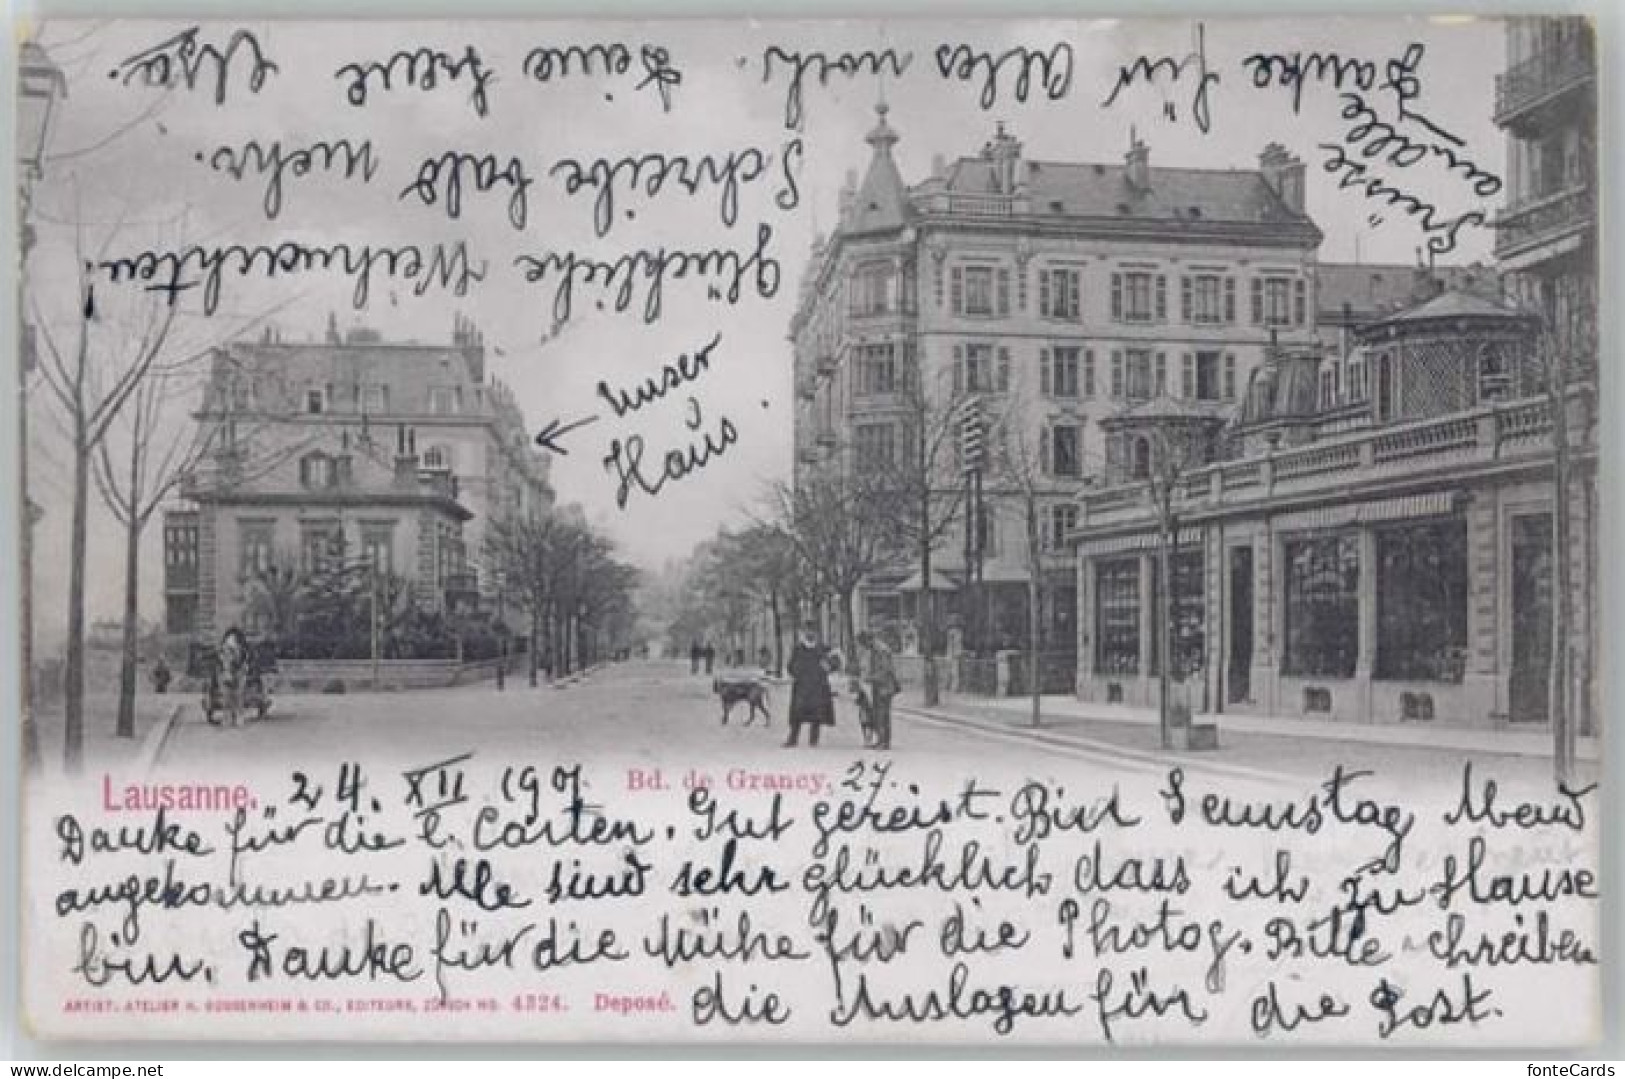 Lausanne. 24. XII 1901. Bd. de Grancy, 27.
Danke für die l. Carten. Gut gereist. Bin Samstag Abend
angekommen. Alle sind sehr glücklich dass ich zu Hause
bin. Danke für die Mühe für die Photog. Bitte schreiben
die Auslagen für die Post.
ARTIST. ATELIER H. GUGGENHEIM & CO., EDITEURS, ZÜRICH NO. 4324. Deposé.
← Unser
Haus.
Glückliche Weihnachten!
Schreibe bald mehr.
Danke für Alles noch. Deine treue
Grüsse
an alle
delcampe.net
fonteCards